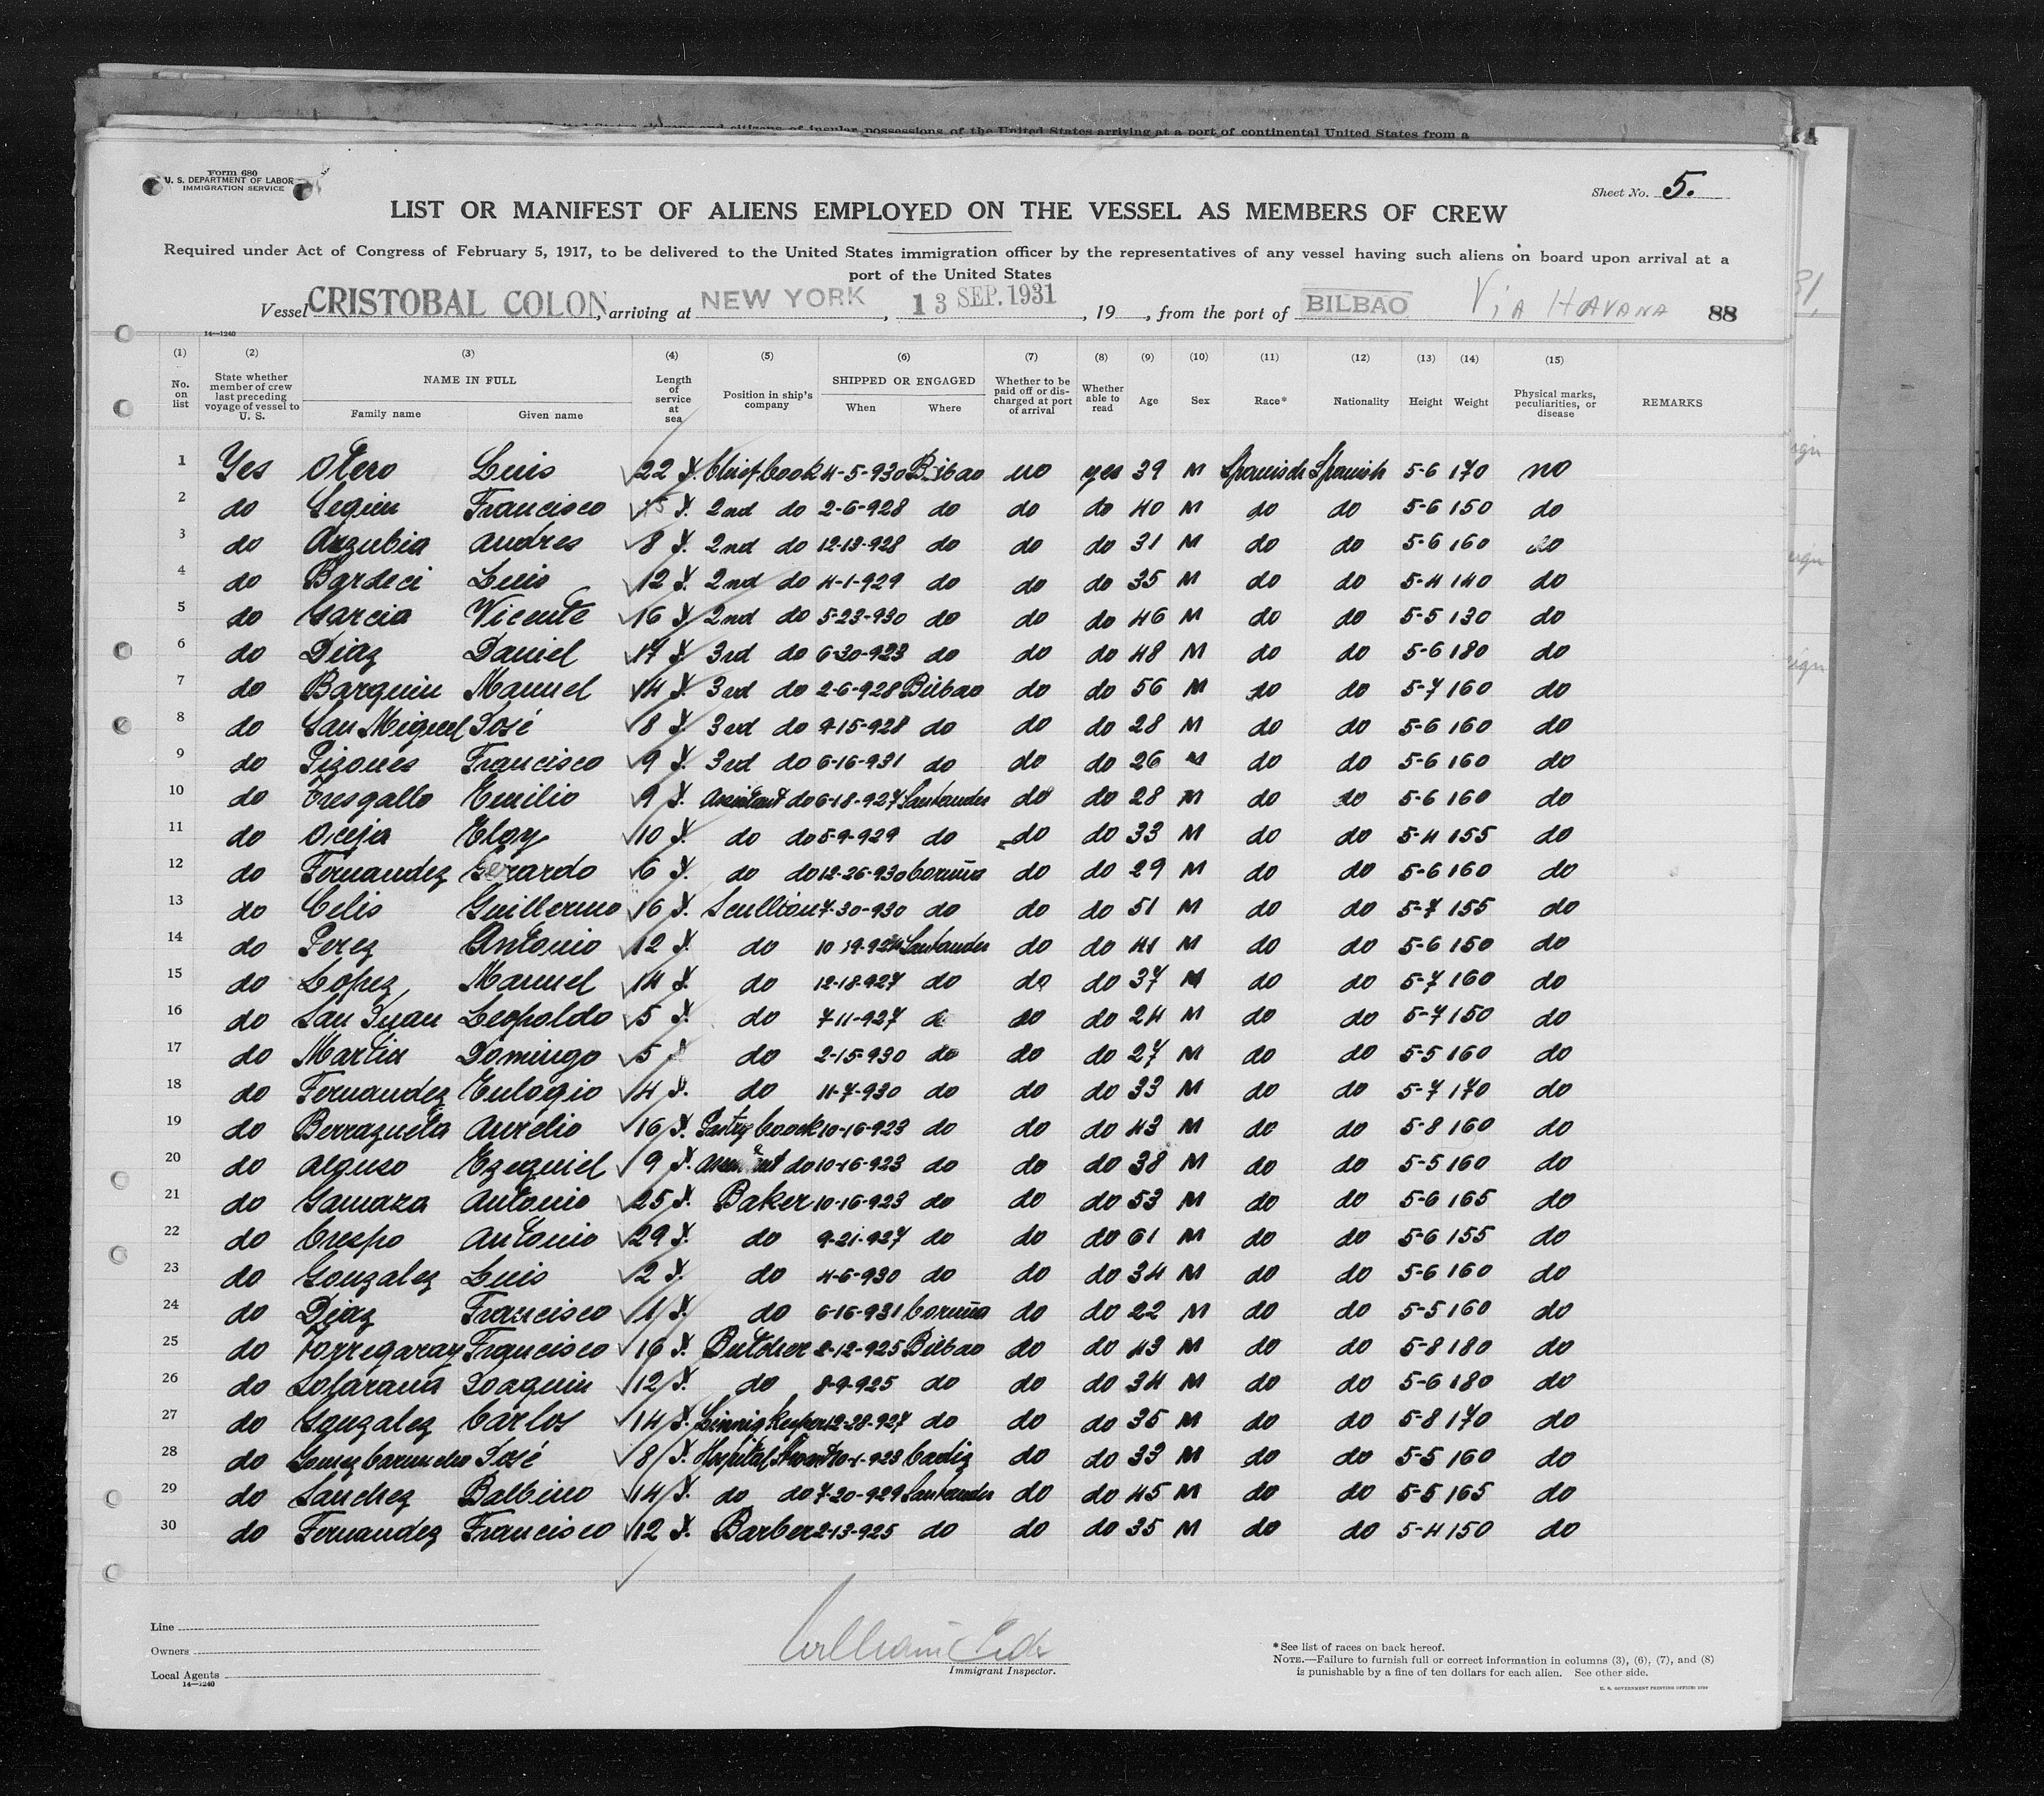 United States citizens and citizens of insular possessions of the United States arriving at a port of continental United States from a
Form 680
U. S. DEPARTMENT OF LABOR
IMMIGRATION SERVICE
Sheet No. 5.
LIST OR MANIFEST OF ALIENS EMPLOYED ON THE VESSEL AS MEMBERS OF CREW
Required under Act of Congress of February 5, 1917, to be delivered to the United States immigration officer by the representatives of any vessel having such aliens on board upon arrival at a
port of the United States
Vessel CRISTOBAL COLON, arriving at NEW YORK, 13 SEP. 1931, 19 , from the port of BILBAO Via HAVANA 88
14—1240
(1) (2) (3) (4) (5) (6) (7) (8) (9) (10) (11) (12) (13) (14) (15)
No. on list State whether member of crew last preceding voyage of vessel to U. S. NAME IN FULL Family name Given name Length of service at sea Position in ship's company SHIPPED OR ENGAGED When Where Whether to be paid off or discharged at port of arrival Whether able to read Age Sex Race* Nationality Height Weight Physical marks, peculiarities, or disease REMARKS
1 Yes Otero Luis 22 Y. Chief Cook 4-5-930 Bilbao no yes 39 M Spanish Spanish 5-6 170 no
2 do Seguin Francisco 15 Y. 2nd do 2-6-928 do do do 40 M do do 5-6 150 do
3 do Auzubia Andres 8 Y. 2nd do 12-13-928 do do do 31 M do do 5-6 160 do
4 do Bardeci Luis 12 Y. 2nd do 4-1-929 do do do 35 M do do 5-4 140 do
5 do Garcia Vicente 16 Y 2nd do 5-23-930 do do do 46 M do do 5-5 130 do
6 do Diaz Daniel 17 Y. 3rd do 6-30-923 do do do 48 M do do 5-6 180 do
7 do Barquin Manuel 14 Y. 3rd do 2-6-928 Bilbao do do 56 M do do 5-7 160 do
8 do San Miguel José 8 Y. 3rd do 9-15-928 do do do 28 M do do 5-6 160 do
9 do Pizones Francisco 9 Y. 3rd do 6-16-931 do do do 26 M do do 5-6 160 do
10 do Tresgallo Emilio 9 Y. Assistant do 6-18-927 Santander do do 28 M do do 5-6 160 do
11 do Oceja Eloy 10 Y. do do 5-9-929 do do do 33 M do do 5-4 155 do
12 do Fernandez Gerardo 6 Y. do do 12-26-930 Coruña do do 29 M do do 5-6 160 do
13 do Celis Guillermo 16 Y. Scullion 7-30-930 do do do 51 M do do 5-7 155 do
14 do Perez Antonio 12 Y. do 10-19-924 Santander do do 41 M do do 5-6 150 do
15 do Lopez Manuel 14 Y. do 12-18-927 do do do 37 M do do 5-7 160 do
16 do San Juan Leopoldo 5 Y. do 7-11-927 do do do 24 M do do 5-7 150 do
17 do Martin Domingo 5 Y do 2-15-930 do do do 27 M do do 5-5 160 do
18 do Fernandez Eulogio 4 Y. do 11-7-930 do do do 33 M do do 5-7 170 do
19 do Berrazueta Aurelio 16 Y. Pastry Coock 10-16-923 do do do 43 M do do 5-8 160 do
20 do Alonso Ezequiel 9 Y. Assistant do 10-16-923 do do do 38 M do do 5-5 160 do
21 do Gamaza Antonio 25 Y. Baker 10-16-923 do do do 53 M do do 5-6 165 do
22 do Crespo Antonio 29 Y. do 9-21-927 do do do 61 M do do 5-6 155 do
23 do Gonzalez Luis 2 Y. do 4-6-930 do do do 34 M do do 5-6 160 do
24 do Diaz Francisco 1 Y. do 6-16-931 Coruña do do 22 M do do 5-5 160 do
25 do Torregaray Francisco 16 Y. Butcher 2-12-925 Bilbao do do 43 M do do 5-8 180 do
26 do Joaquin 12 Y. do 8-9-925 do do do 34 M do do 5-6 180 do
27 do Gonzalez Carlos 14 Y. 12-28-927 do do do 35 M do do 5-8 170 do
28 do Gomez José 8 Y. Hospital 10-1-923 Cadiz do do 33 M do do 5-5 160 do
29 do Sanchez Balbino 14 Y. do do 7-20-929 Santander do do 45 M do do 5-5 165 do
30 do Fernandez Francisco 12 Y. Barber 2-13-925 do do do 35 M do do 5-4 150 do
Line
Owners
Local Agents
14—1240
William
Immigrant Inspector.
*See list of races on back hereof.
NOTE.—Failure to furnish full or correct information in columns (3), (6), (7), and (8)
is punishable by a fine of ten dollars for each alien. See other side.
U. S. GOVERNMENT PRINTING OFFICE: 1929